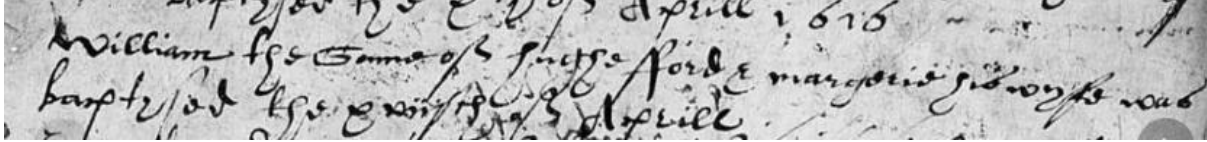 baptysed the x th of Aprill 1616
William the Sonne of hughe fford & margerie his wyfe was
baptysed the xviijth of Aprill